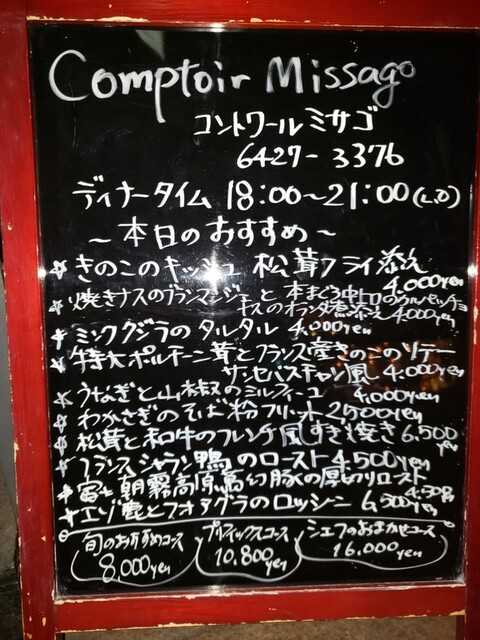 Comptoir Missago
コントワールミサゴ
6427-3376
ディナータイム 18:00〜21:00(L.O)
〜本日のおすすめ〜
☆きのこのキッシュ 松茸フライ添え
4,000yen
☆焼きナスのブランマンジェと本まぐろ中トロのカルパッチョ
4,000yen
☆ミンククジラのタルタル 4,000yen
☆特大ポルチーニ茸とフランス産きのこのソテー
サンセバスチャン風 4,000yen
☆うなぎと山椒のミルフィーユ 4,000yen
☆わかさぎのそば粉フリット 2500yen
☆松茸と和牛のフレンチ風すき焼き 6,500yen
☆フランスシャラン鴨のロースト 4,500yen
☆富士朝霧高原放幻豚の厚切りロースト
☆エゾ鹿とフォアグラのロッシーニ 6,500yen
旬のおすすめコース
8,000yen
プリフィックスコース
10,800yen
シェフのおまかせコース
16,000yen